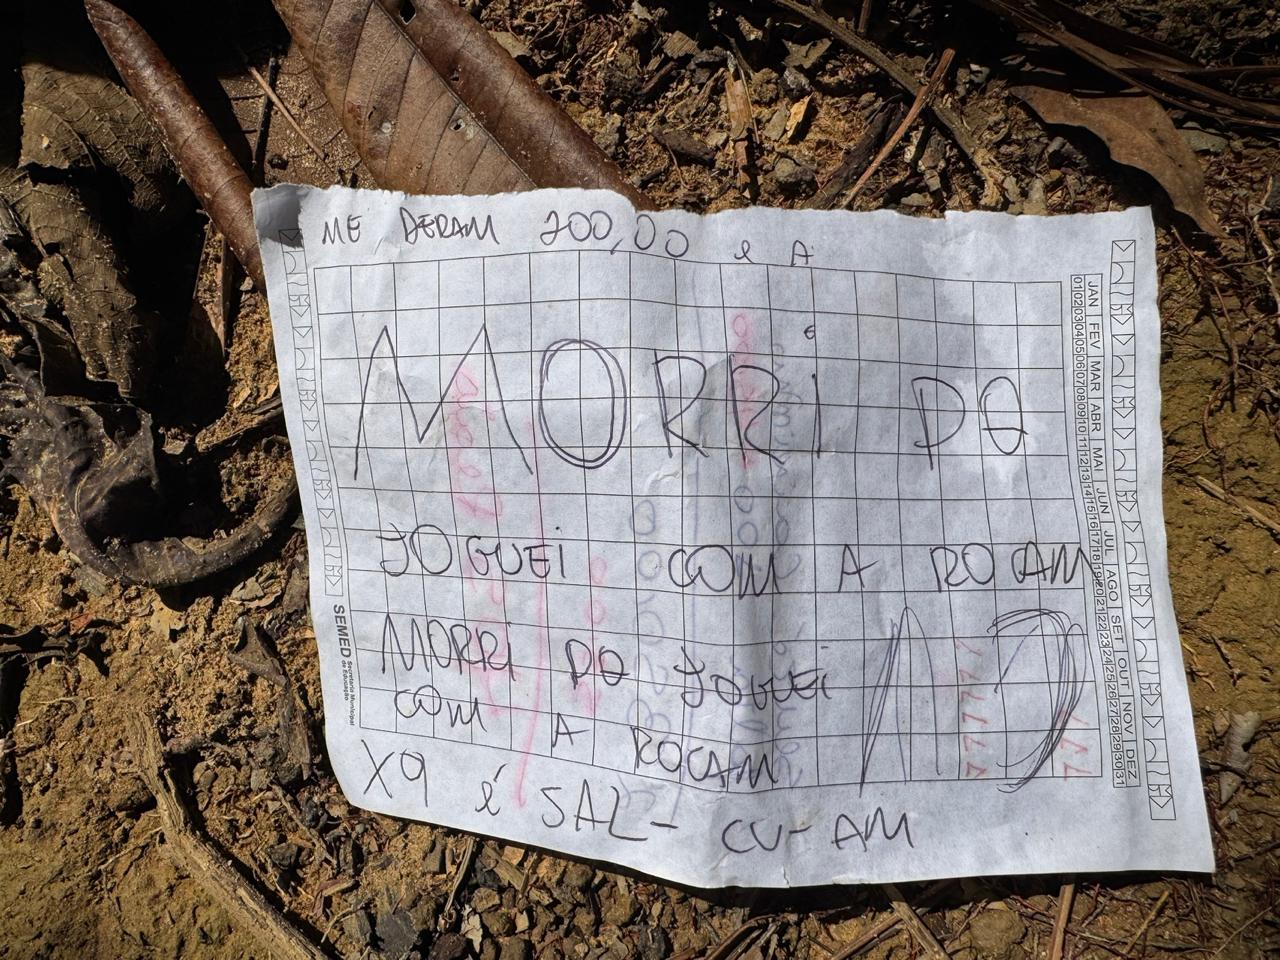 ME DERAM 200,00 e A
MORRi PQ
JOGUEi COM A ROCAM
MORRi PQ JOGUEi
COM A ROCAM
X9 é SAL- CV- AM
JAN FEV MAR ABR MAI JUN JUL AGO SET OUT NOV DEZ
01 02 03 04 05 06 07 08 09 10 11 12 13 14 15 16 17 18 19 20 21 22 23 24 25 26 27 28 29 30 31
SEMED
Secretaria Municipal
de Educação